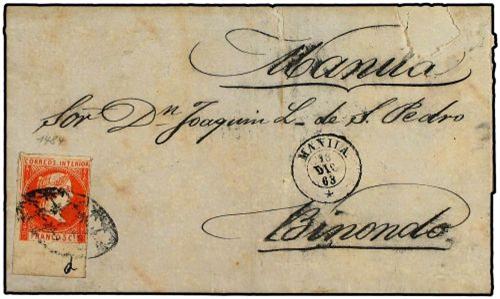 Manila
Sor Dn Joaquin L. de S. Pedro
1484
CORREOS INTERIOR
FRANCO 5 Cs
MANILA
18
DIC
63
Binondo